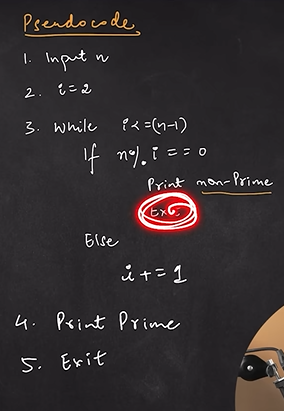 Pseudocode
1. Input n
2. i=2
3. While i<=(n-1)
If n%i==0
Print non-Prime
Else
i+=1
4. Print Prime
5. Exit